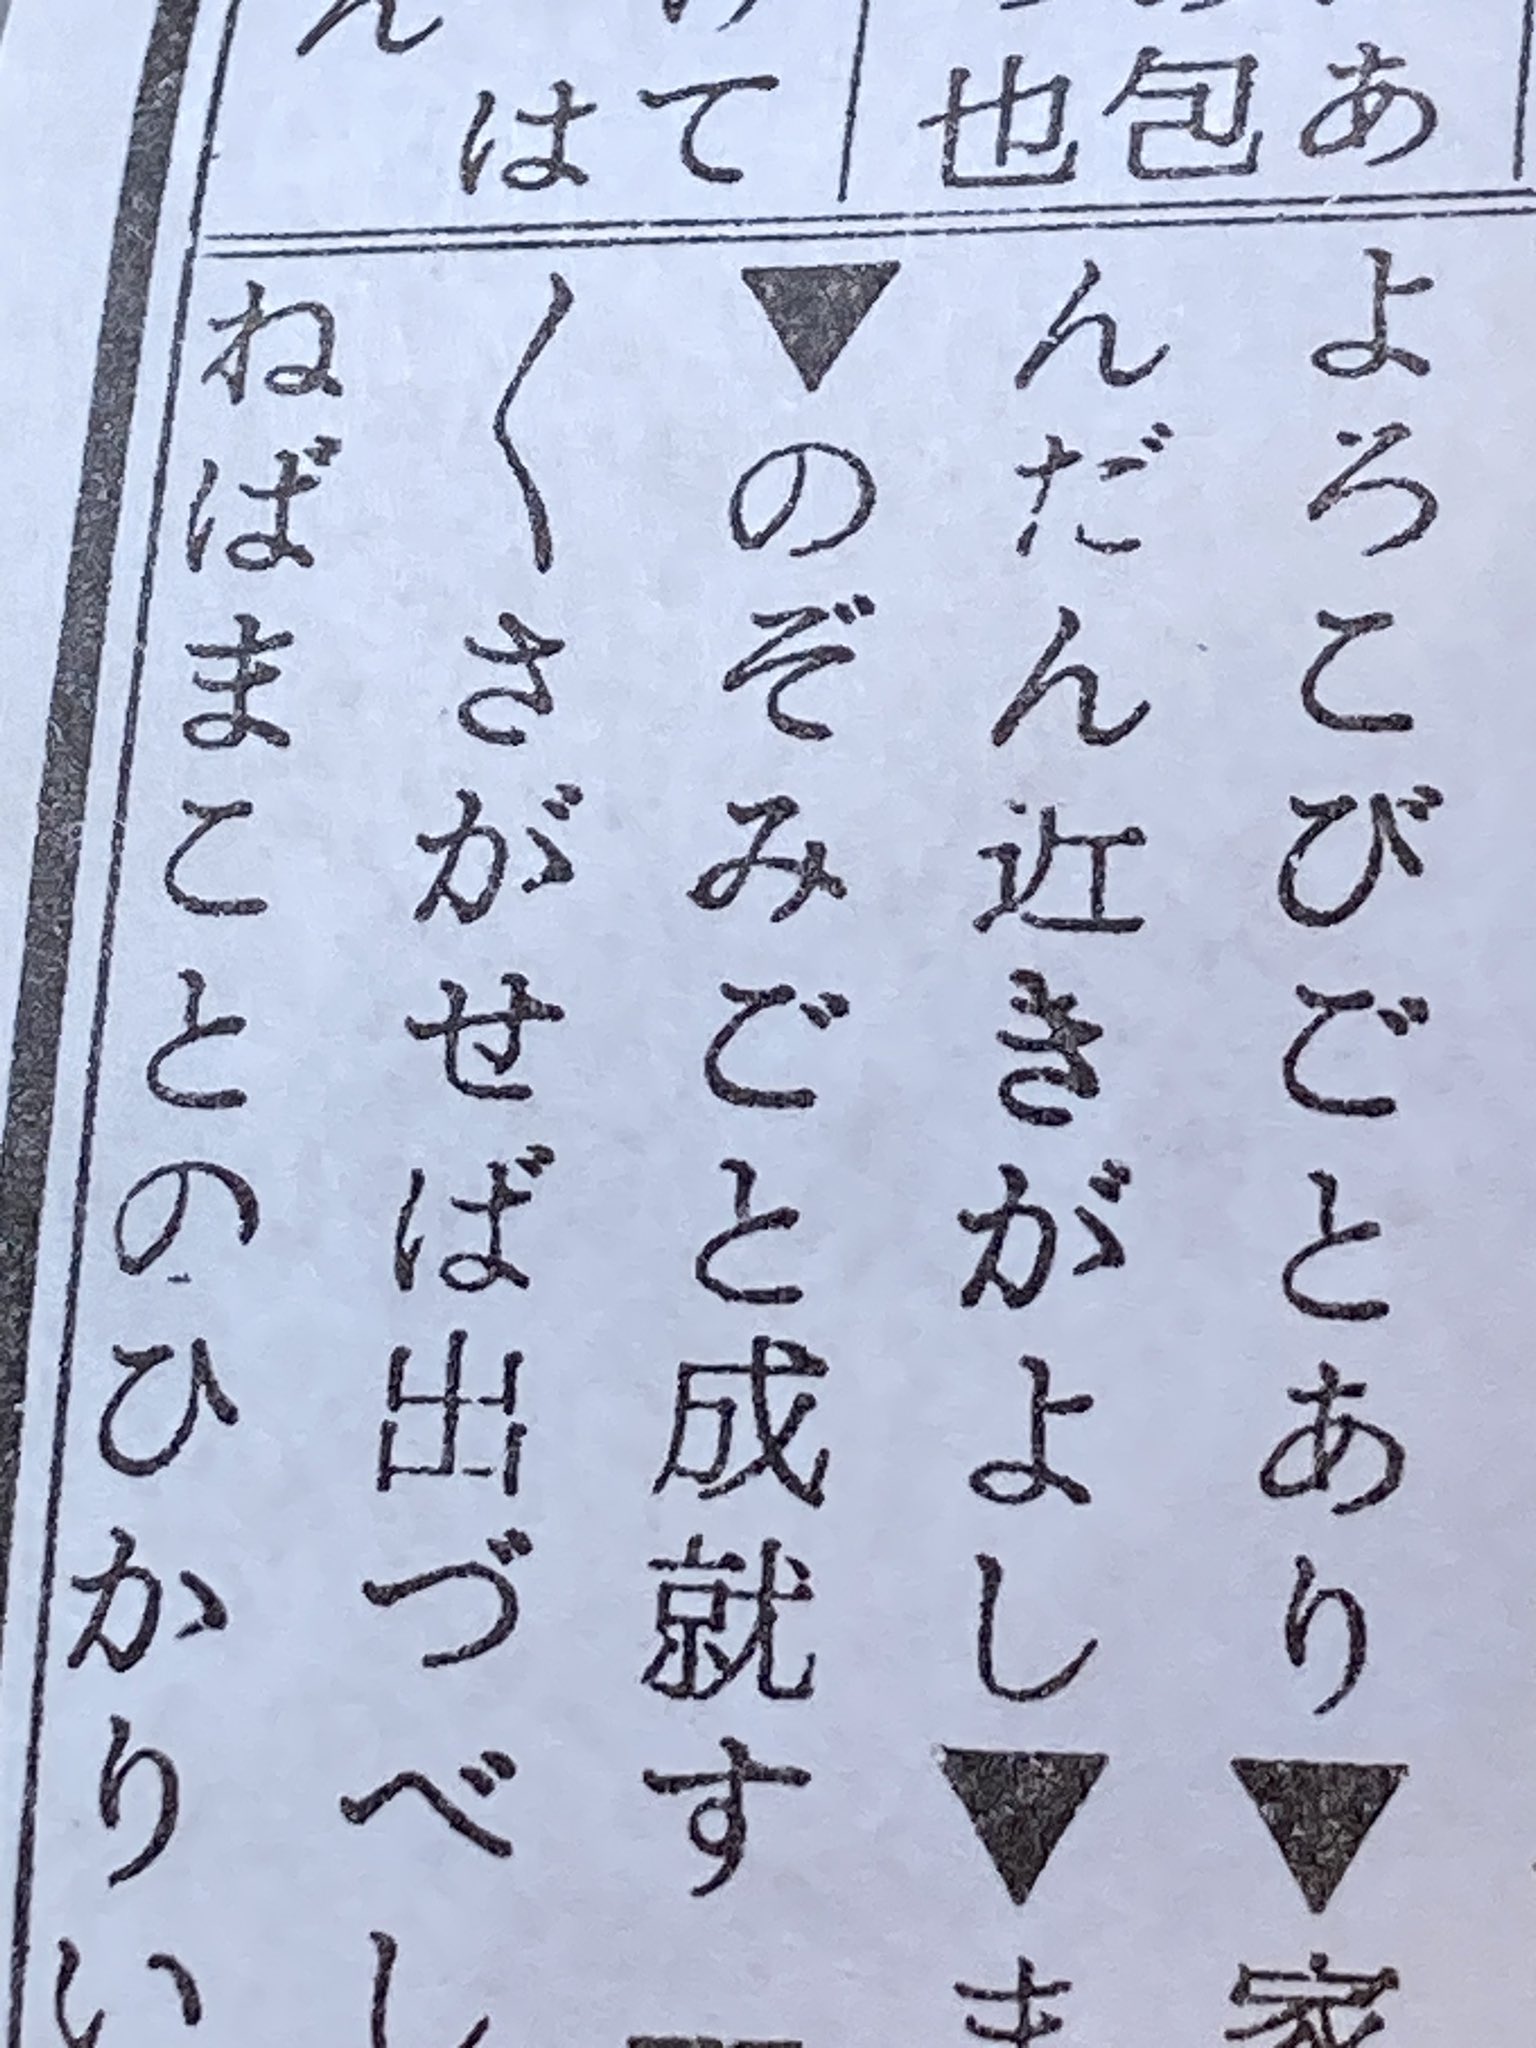 あ
包
也
て
は
よろこびごとあり▼家
んだんに近きがよし▼ま
▼のぞみごと成就す
〱さがせば出づべし
ねばまことのひかりい